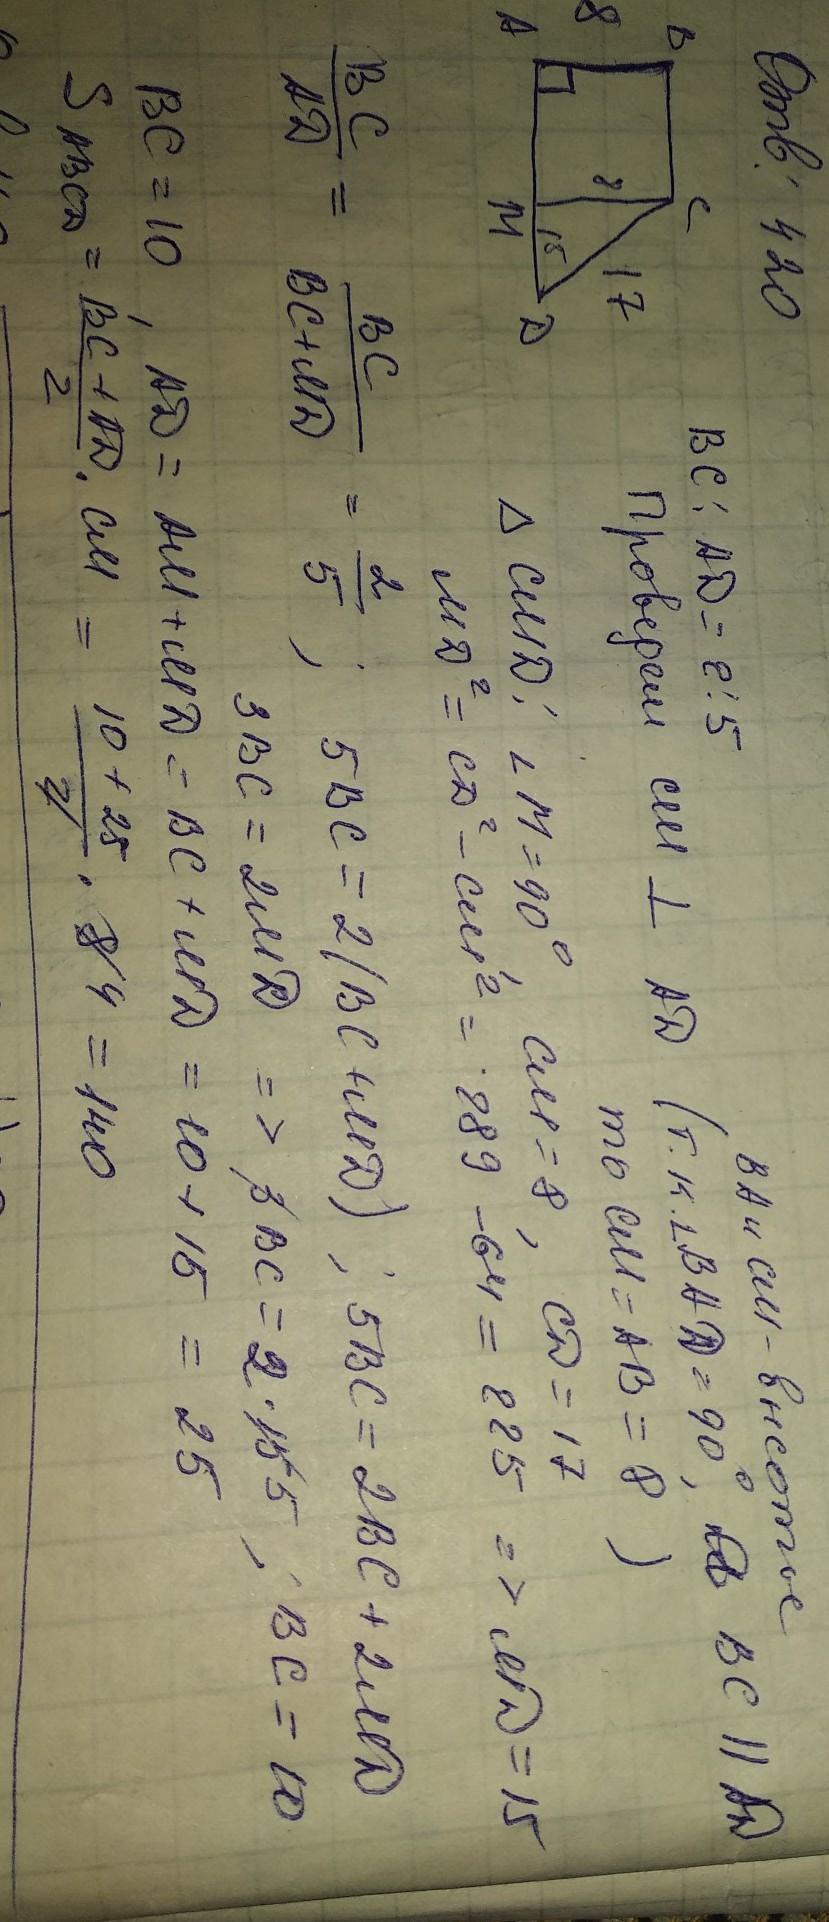 Отв: 420
BC : AD = 2:5
BA и CM - высоты
Проведем CM ⊥ AD (т.к. ∠BAD = 90°, BC || AD
то CM = AB = 8)
B C
8 8 17
A M 15 D
Δ CMD: ∠M = 90° CM = 8, CD = 17
MD² = CD² - CM² = 289 - 64 = 225 => MD = 15
BC/AD = BC/BC+MD = 2/5 ; 5BC = 2(BC+MD) ; 5BC = 2BC + 2MD
3BC = 2MD => 3BC = 2·15 5 ; BC = 10
BC = 10, AD = AM + MD = BC + MD = 10 + 15 = 25
S ABCD = BC + AD/2 · CM = 10 + 25/2 · 8 4 = 140